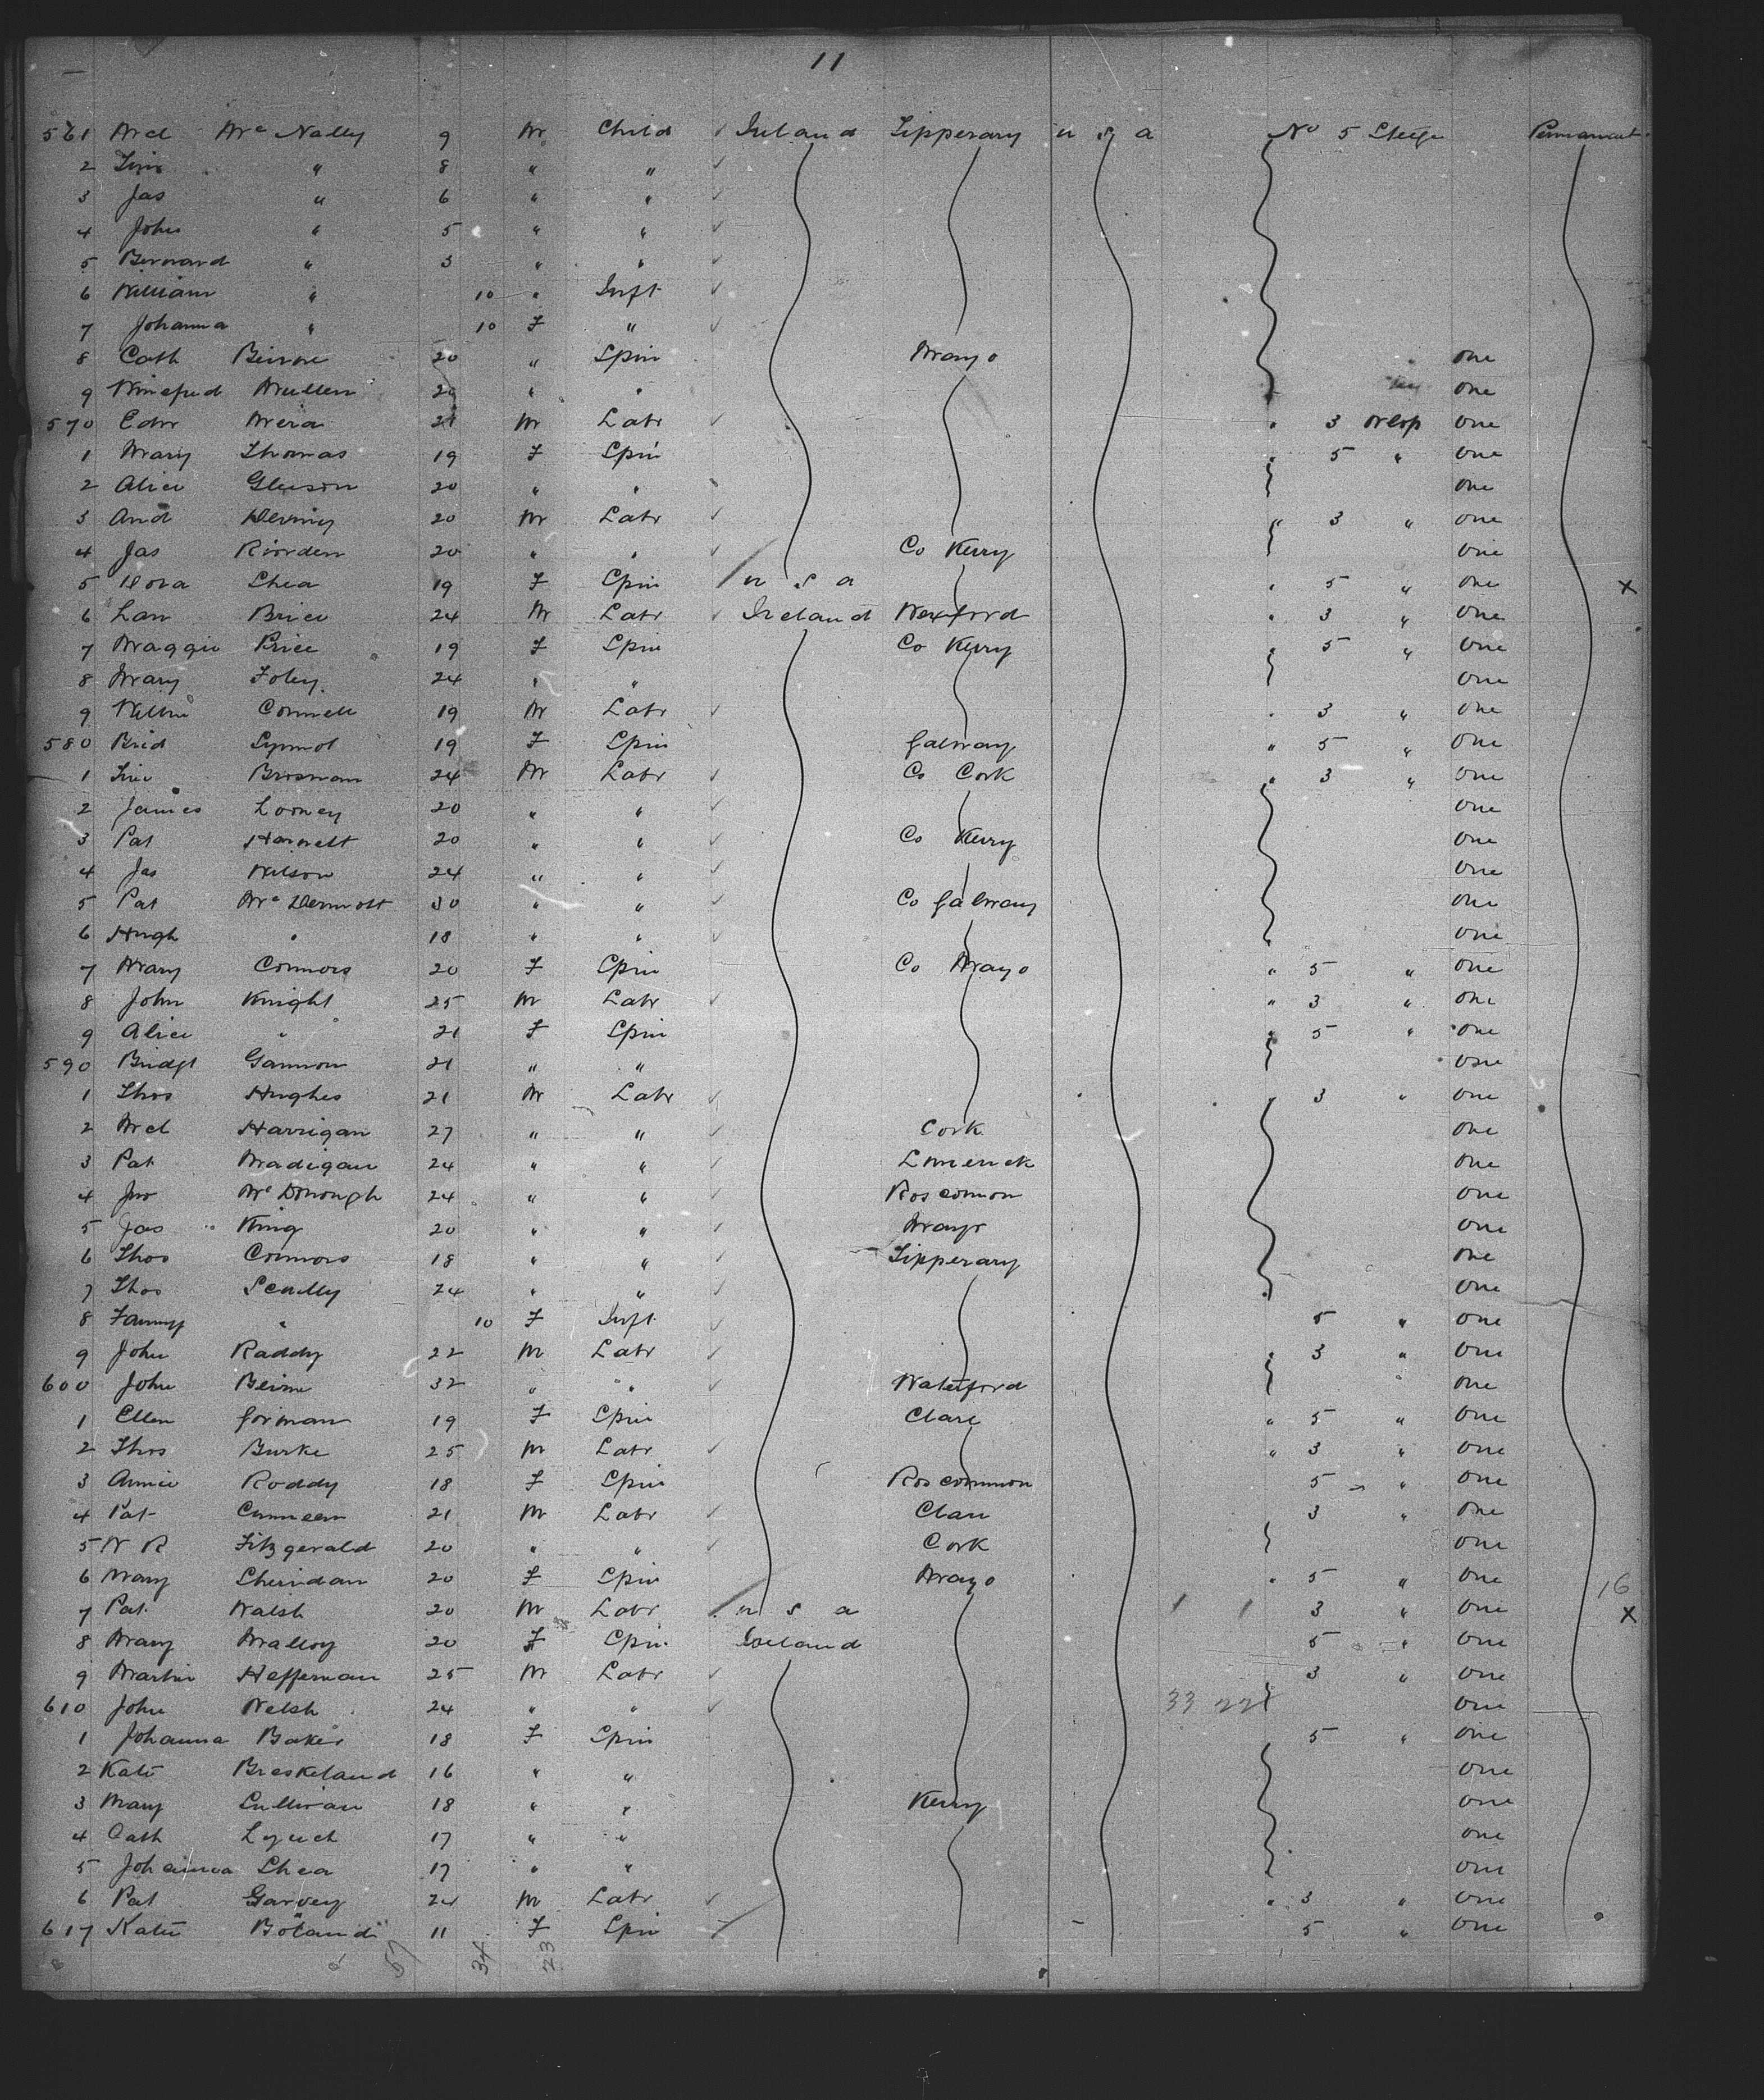 11
561 Mcl Mc Nally 9 M Child ✓ Ireland Tipperary U S A No 5 Steege Permanent
2 Tim " 8 " " ✓
3 Jas " 6 " " ✓
4 John " 5 " " ✓
5 Bernard " 3 " " ✓
6 William " 10 " Inft ✓
7 Johanna " 10 F " ✓
8 Cath Beirne 20 " Spin Mayo one
9 Winefred Mullen 20 " " one
570 Edw 21 M Labr ✓ " 3 Orlop one
1 Mary Thomas 19 F Spin " 5 " one
2 Alice Gleeson 20 " " one
3 And 20 M Labr ✓ " 3 " one
4 Jas Riorden 20 " " ✓ Co Kerry one
5 Nora Shea 19 F Spin U S A " 5 " one X
6 Lau Brice 24 M Labr ✓ Ireland Wexford " 3 " one
7 Maggie Brice 19 F Spin Co Kerry " 5 " one
8 Mary Foley 24 " " one
9 Connell 19 M Labr ✓ " 3 " one
580 Brid 19 F Spin Galway " 5 " one
1 Brosnan 24 M Labr ✓ Co Cork " 3 " one
2 James Looney 20 " " ✓ one
3 Pat Harnett 20 " " ✓ Co Kerry one
4 Jas Wilson 24 " " ✓ one
5 Pat Mc Dermott 30 " " ✓ Co Galway one
6 Hugh " 18 " " ✓ one
7 Mary Connors 20 F Spin Co Mayo " 5 " one
8 John Knight 25 M Labr ✓ " 3 " one
9 Alice " 21 F Spin " 5 " one
590 Bridgt Gannon 21 " " one
1 Thos Hughes 21 M Labr ✓ " 3 " one
2 Mcl Harrigan 27 " " ✓ Cork one
3 Pat Madigan 24 " " ✓ Limerick one
4 Jno Mc Donough 24 " " ✓ Roscomon one
5 Jas King 20 " " ✓ Mayo one
6 Thos Connors 18 " " ✓ Tipperary one
7 Thos Scully 24 " " ✓ one
8 Fanny " 10 F Inft ✓ 5 " one
9 John Raddy 22 M Labr ✓ " 3 " one
600 John Beirne 32 " " ✓ Waterford one
1 Ellen Gorman 19 F Spin Clare " 5 " one
2 Thos Burke 25 M Labr ✓ " 3 " one
3 Annie Roddy 18 F Spin Roscommon 5 " one
4 Pat Cunneen 21 M Labr ✓ Clare 3 " one
5 W R Fitzgerald 20 " " ✓ Cork one
6 Mary Sheridan 20 F Spin Mayo " 5 " one 16
7 Pat Walsh 20 M Labr U S A 1 1 3 " one X
8 Mary Malloy 20 F Spin Ireland 5 " one
9 Martin Heffernan 25 M Labr ✓ 3 " one
610 John Welsh 24 " " ✓ 33 22 one
1 Johanna Baker 18 F Spin 5 " one
2 Kate Breskeland 16 " " one
3 Mary Sullivan 18 " " Kerry one
4 Cath Lynch 17 " " one
5 Johanna Shea 17 " " one
6 Pat Garvey 24 M Labr ✓ " 3 " one
617 Katie Boland 11 F Spin 5 " one
57 34 23